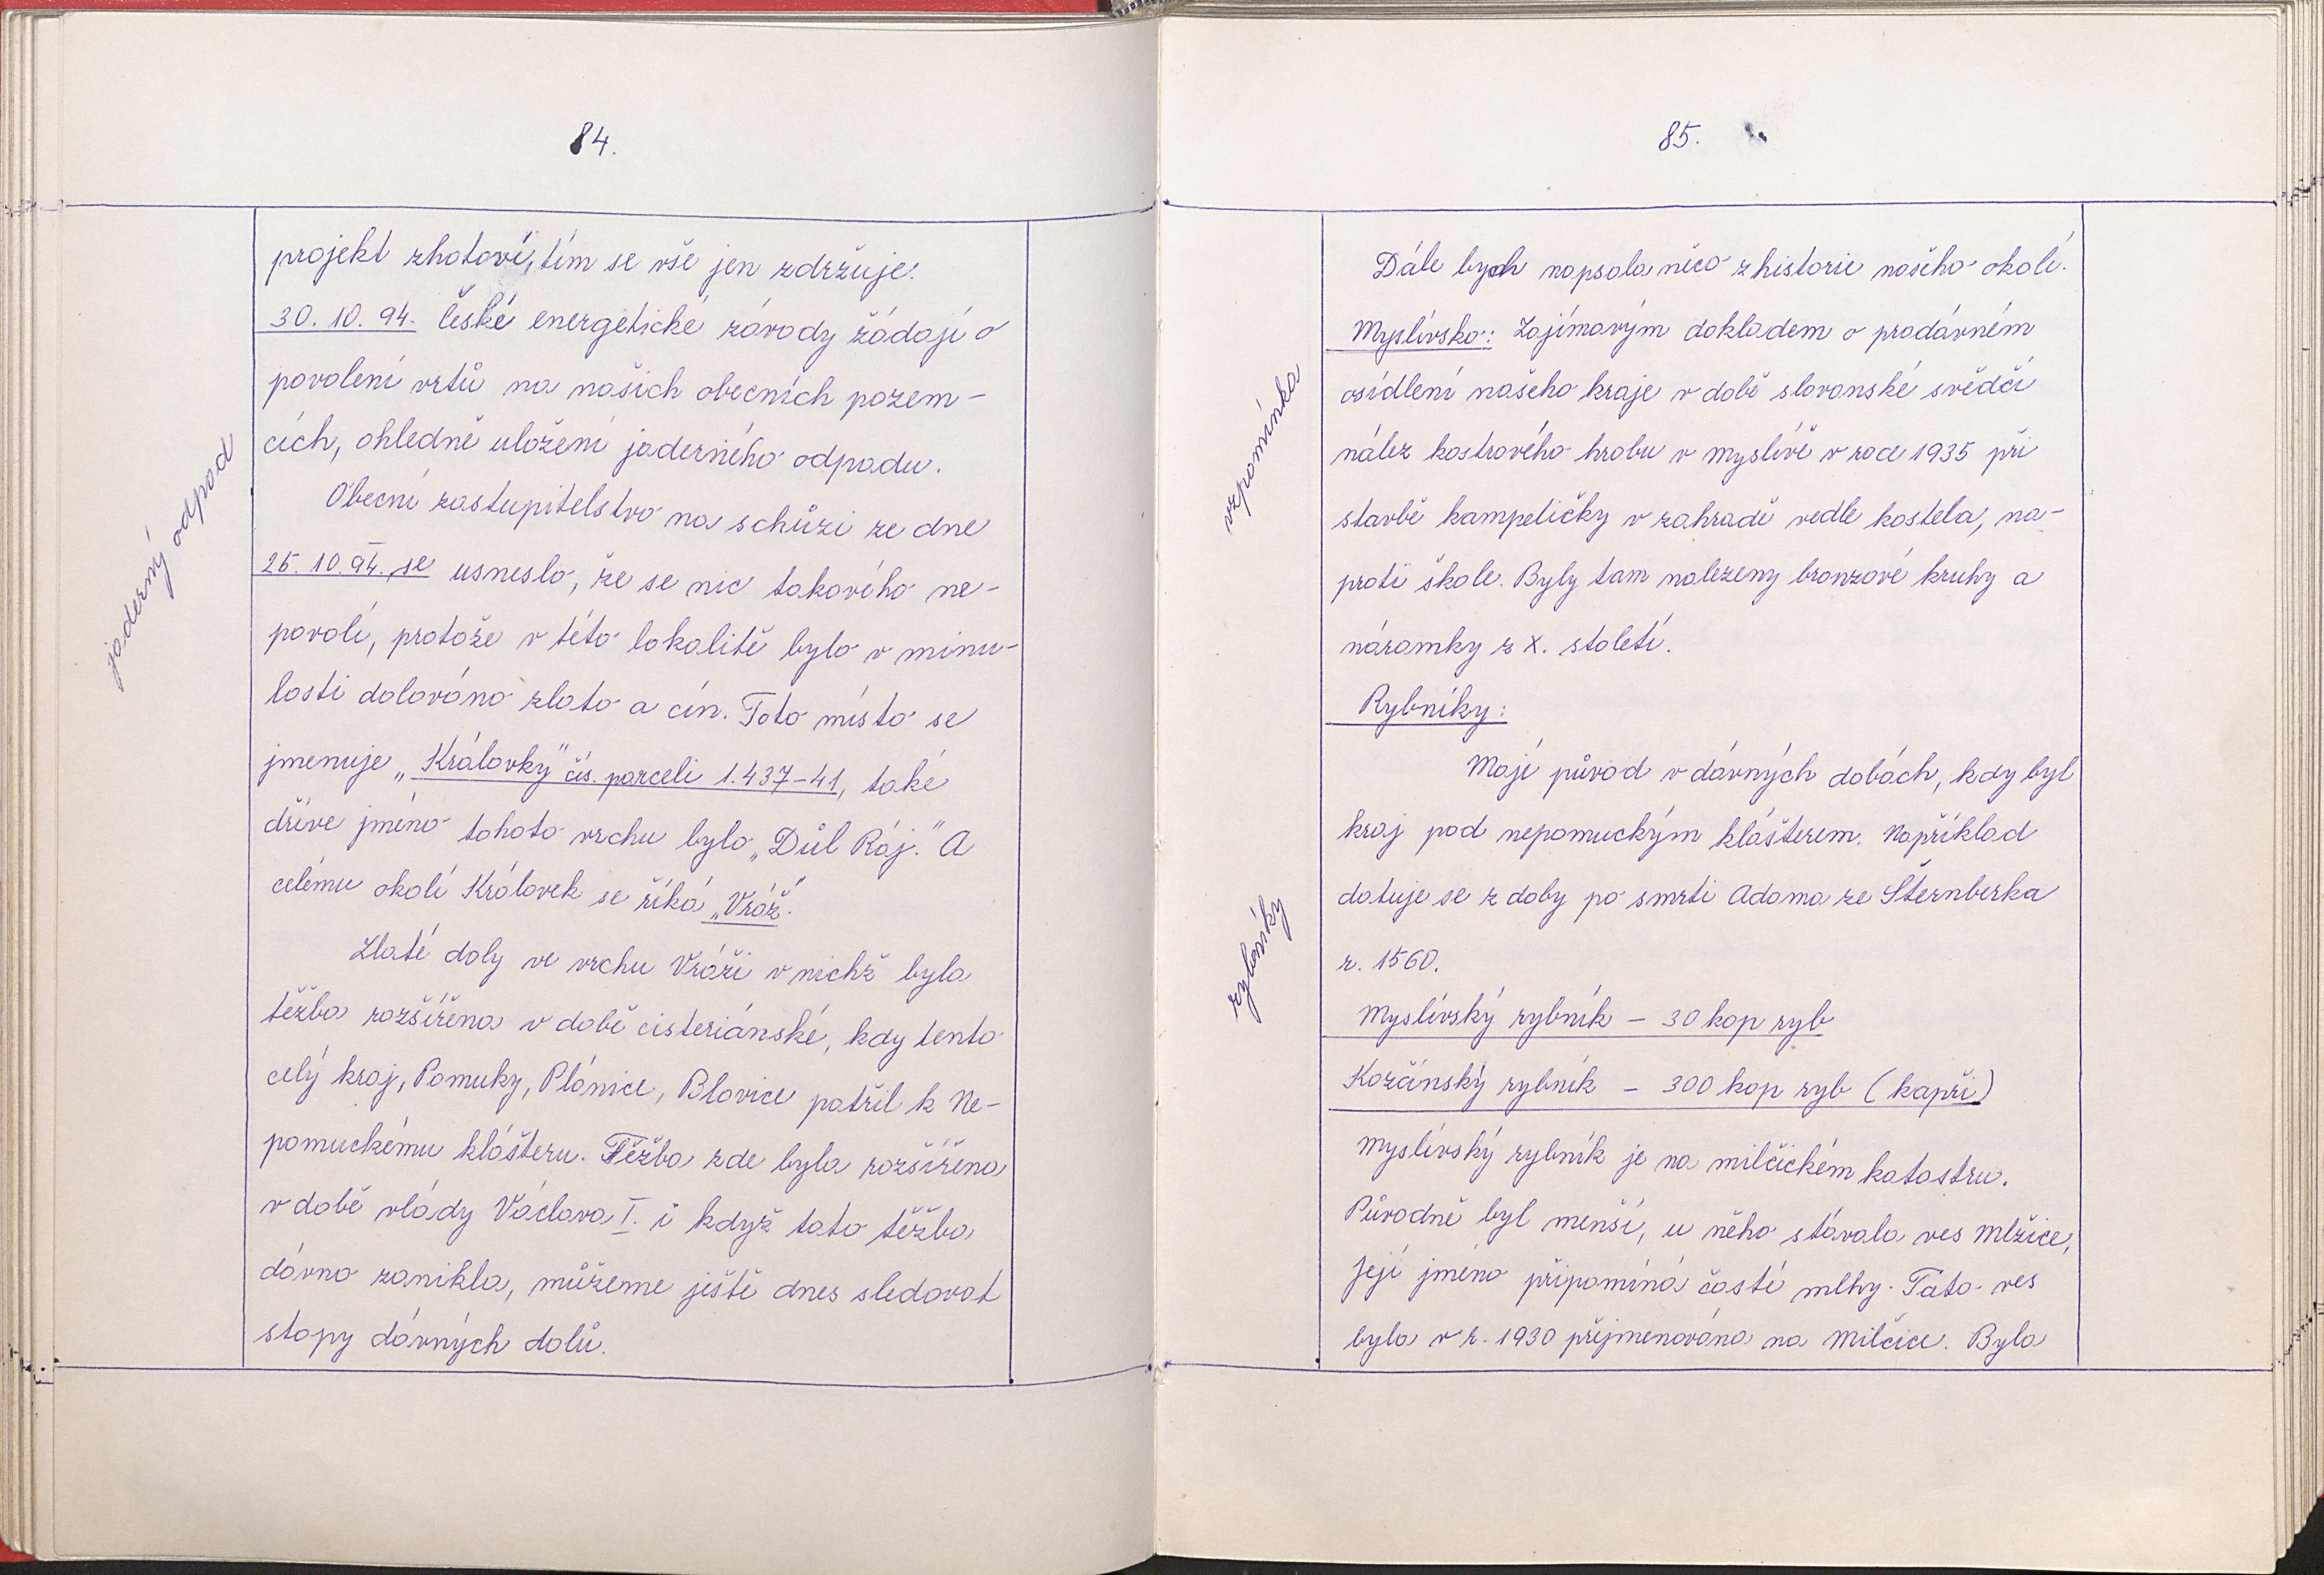 84.
projekt zhotoví, tím se vše jen zdržuje.
30.10.94. České energetické závody žádají o
povolení vrtů na našich obecních pozem-
cích, ohledně uložení jaderného odpadu.
jaderný odpad
Obecní zastupitelstvo na schůzi ze dne
25.10.94. se usneslo, že se nic takového ne-
povolí, protože v této lokalitě bylo v minu-
losti dolováno zlato a cín. Toto místo se
jmenuje „Královky" čís. parceli 1.437-41, také
dříve jméno tohoto vrchu bylo „Důl Ráj." A
celému okolí Královek se říká „Vráž".
Zlaté doly ve vrchu Vráži v nichž byla
těžba rozšířena v době cisteriánské, kdy tento
celý kraj, Pomuky, Plánice, Blovice patřil k Ne-
pomuckému klášteru. Těžba zde byla rozšířena
v době vlády Václava I. i když tato těžba
dávno zanikla, můžeme ještě dnes sledovat
stopy dávných dolů.
85.
Dále bych napsala něco z historie našeho okolí.
Myslívsko: Zajímavým dokladem o pradávném
osídlení našeho kraje v době slovanské svědčí
vzpomínka
nález kostrového hrobu v Myslívě v roce 1935 při
stavbě kampeličky v zahradě vedle kostela, na-
proti škole. Byly tam nalezeny bronzové kruhy a
náramky z X. století.
Rybníky:
Mají původ v dávných dobách, kdy byl
kraj pod nepomuckým klášterem. Například
datuje se z doby po smrti Adama ze Šternberka
rybníky
r. 1560.
Myslívský rybník - 30 kop ryb
Kozčínský rybník - 300 kop ryb (kapři)
Myslívský rybník je na milčickém katastru.
Původně byl menší, u něho stávala ves Mlžice,
Její jméno připomíná časté mlhy. Tato ves
byla v r. 1930 přejmenována na Milčice. Byla